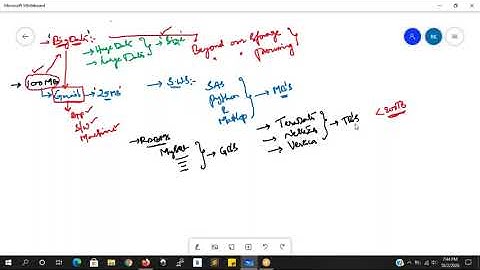 Microsoft Whiteboard
'BigData':-
→ Huge Data
→ Large Data
→ 'Size'
Beyond our storage
" " processing
100MB
Gmail → '25MB'
App
S/W
Machine
→ SWS:-
SAS
Python
R
Matlab
→ MB's
→ RDBMS
MySQL
→ GB's
→ TeraData
→ Netezza
→ Vertica
→ TB's
7:44 PM